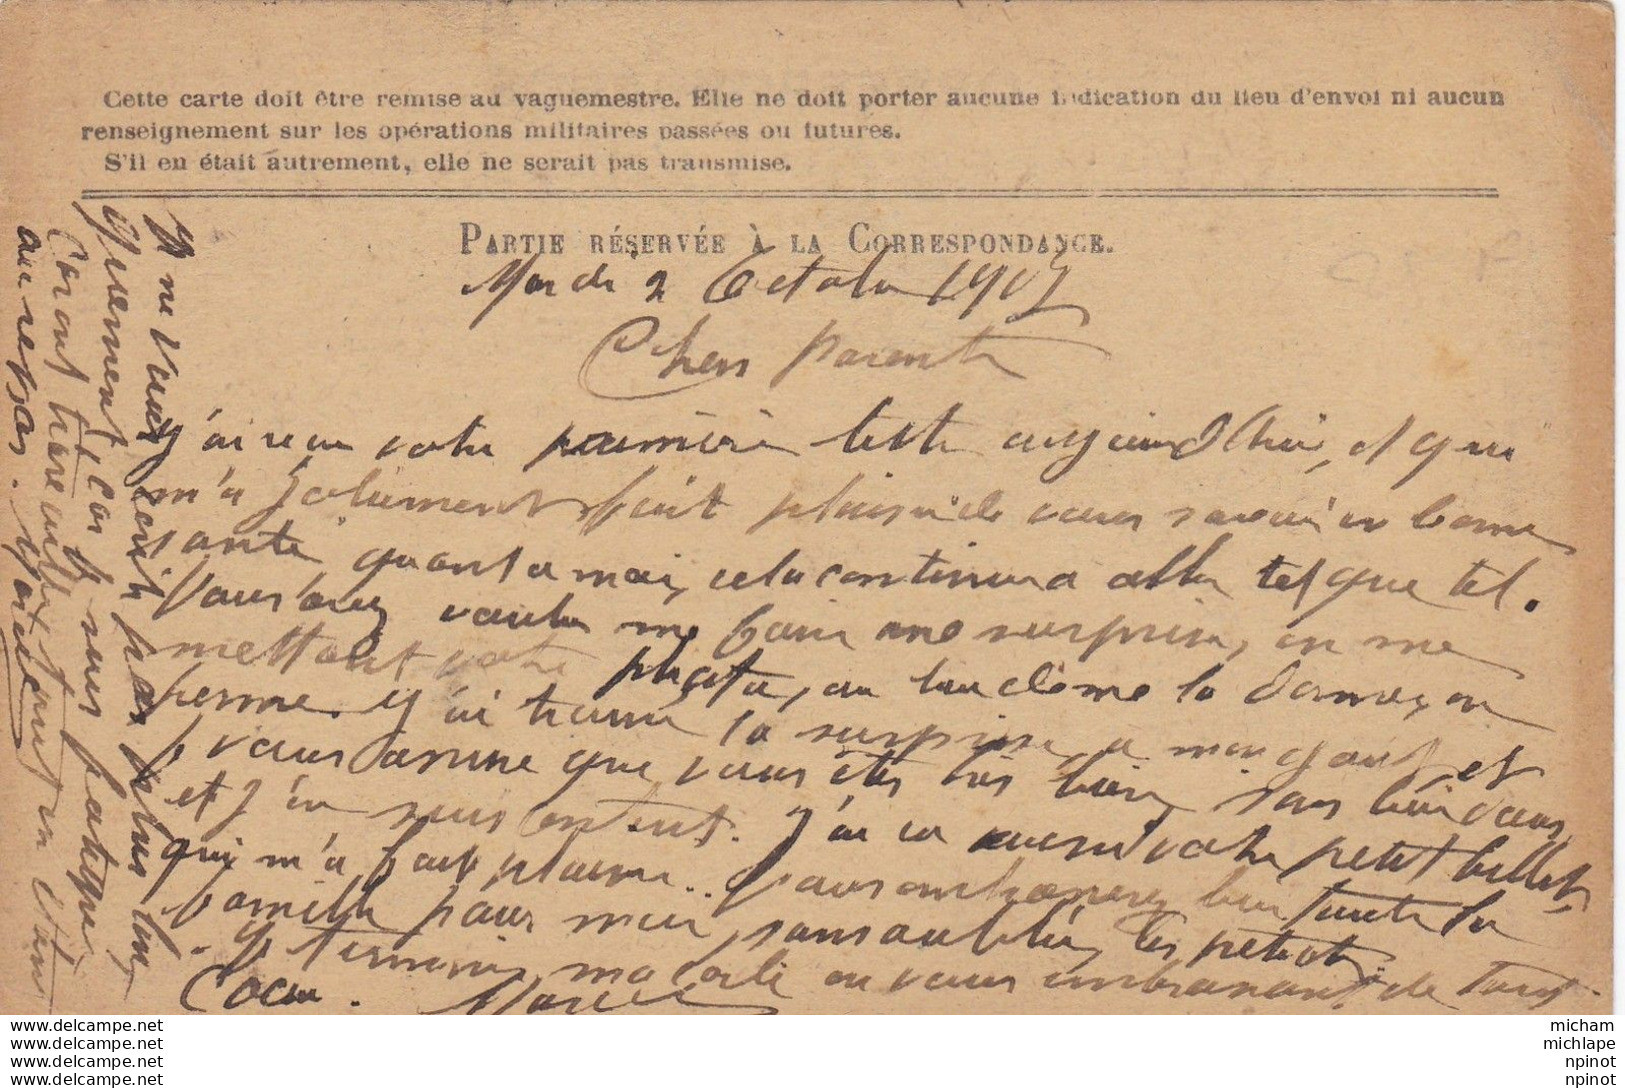 Cette carte doit être remise au vaguemestre. Elle ne doit porter aucune indication du lieu d'envoi ni aucun
renseignement sur les opérations militaires passées ou futures.
S'il en était autrement, elle ne serait pas transmise.
PARTIE RÉSERVÉE À LA CORRESPONDANCE.
Mardi 2 Octobre 1917
Chers parents
j'ai reçu votre première lettre aujourd'hui, et qui
m'a joliment fait plaisir de vous savoir en bonne
santé, quant a moi, cela continue a aller tel que tel.
Vous avez voulu me faire une surprise, en me
mettant votre photo, au
ferme. J'ai trouvé la surprise a mon gout et
vous que vous êtes très bien,
et j'en suis content. J'ai vu votre petit billet,
qui m'a fait plaisir. Vous embrasserez bien toute la
famille pour moi, sans oublier, les petiots
Je termine ma carte en vous embrassant de tout
Coeur. Marcel
Je ne vous écrit pas plus
car je suis fatigué
au repos. Marcel
www.delcampe.net
www.delcampe.net
www.delcampe.net
www.delcampe.net
micham
michlape
npinot
npinot